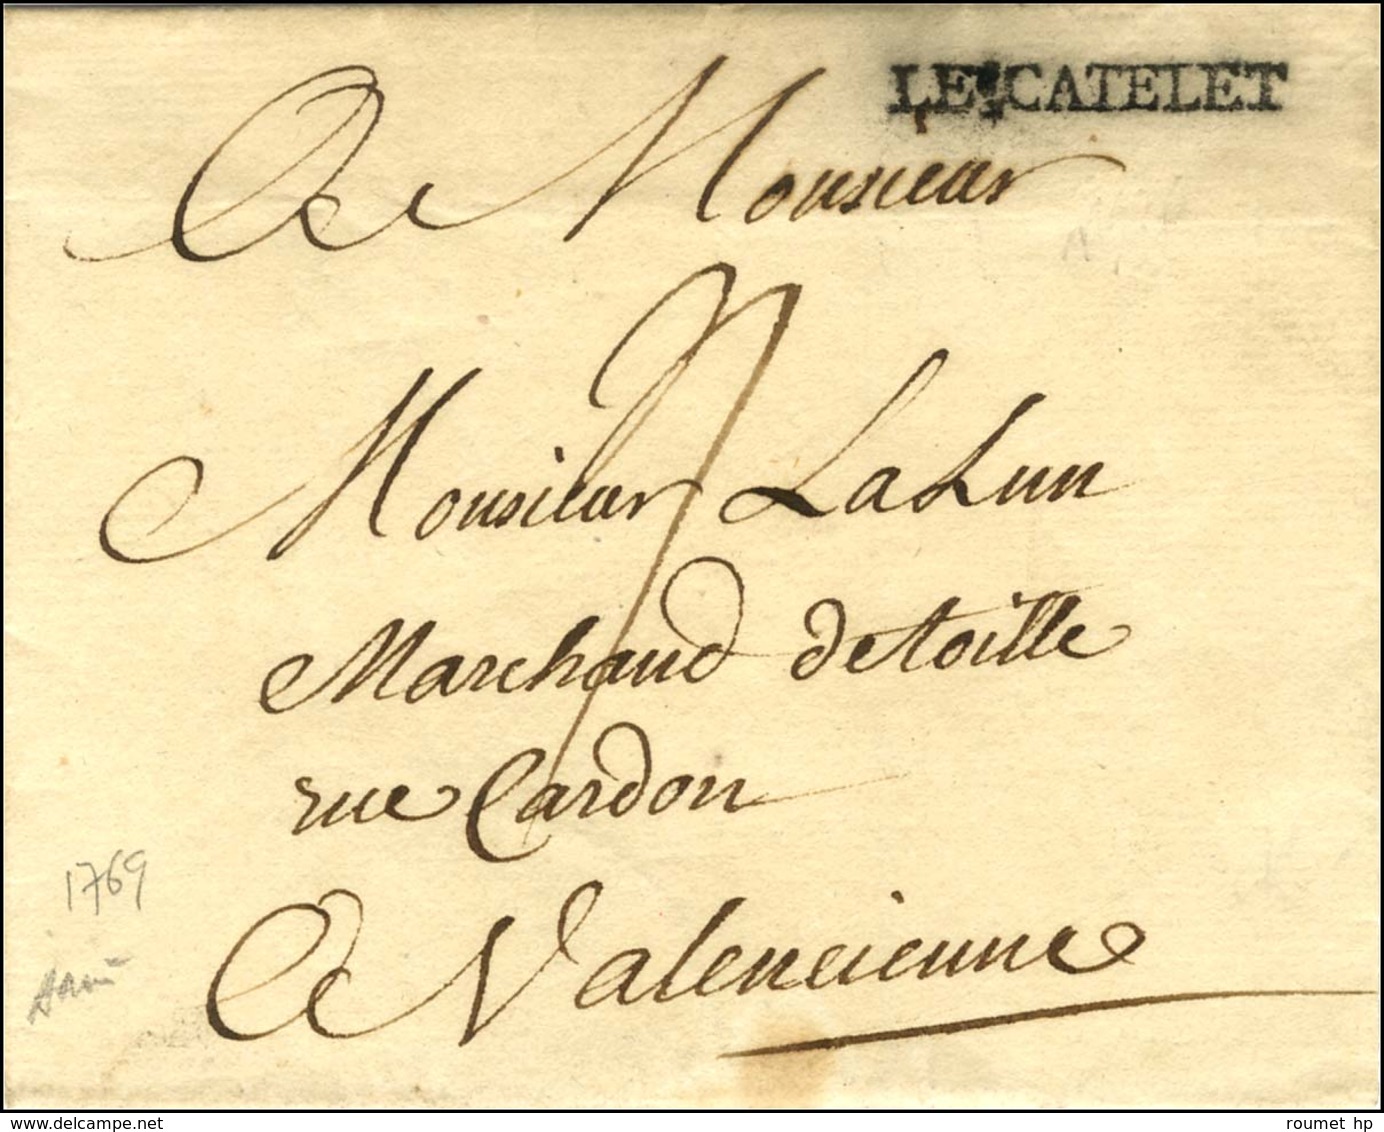 LE CATELET
A Monsieur
Monsieur LaLun
Marchand detoille
rue Cardon
1769
A Valencienne
www.delcampe.net
roumet hp